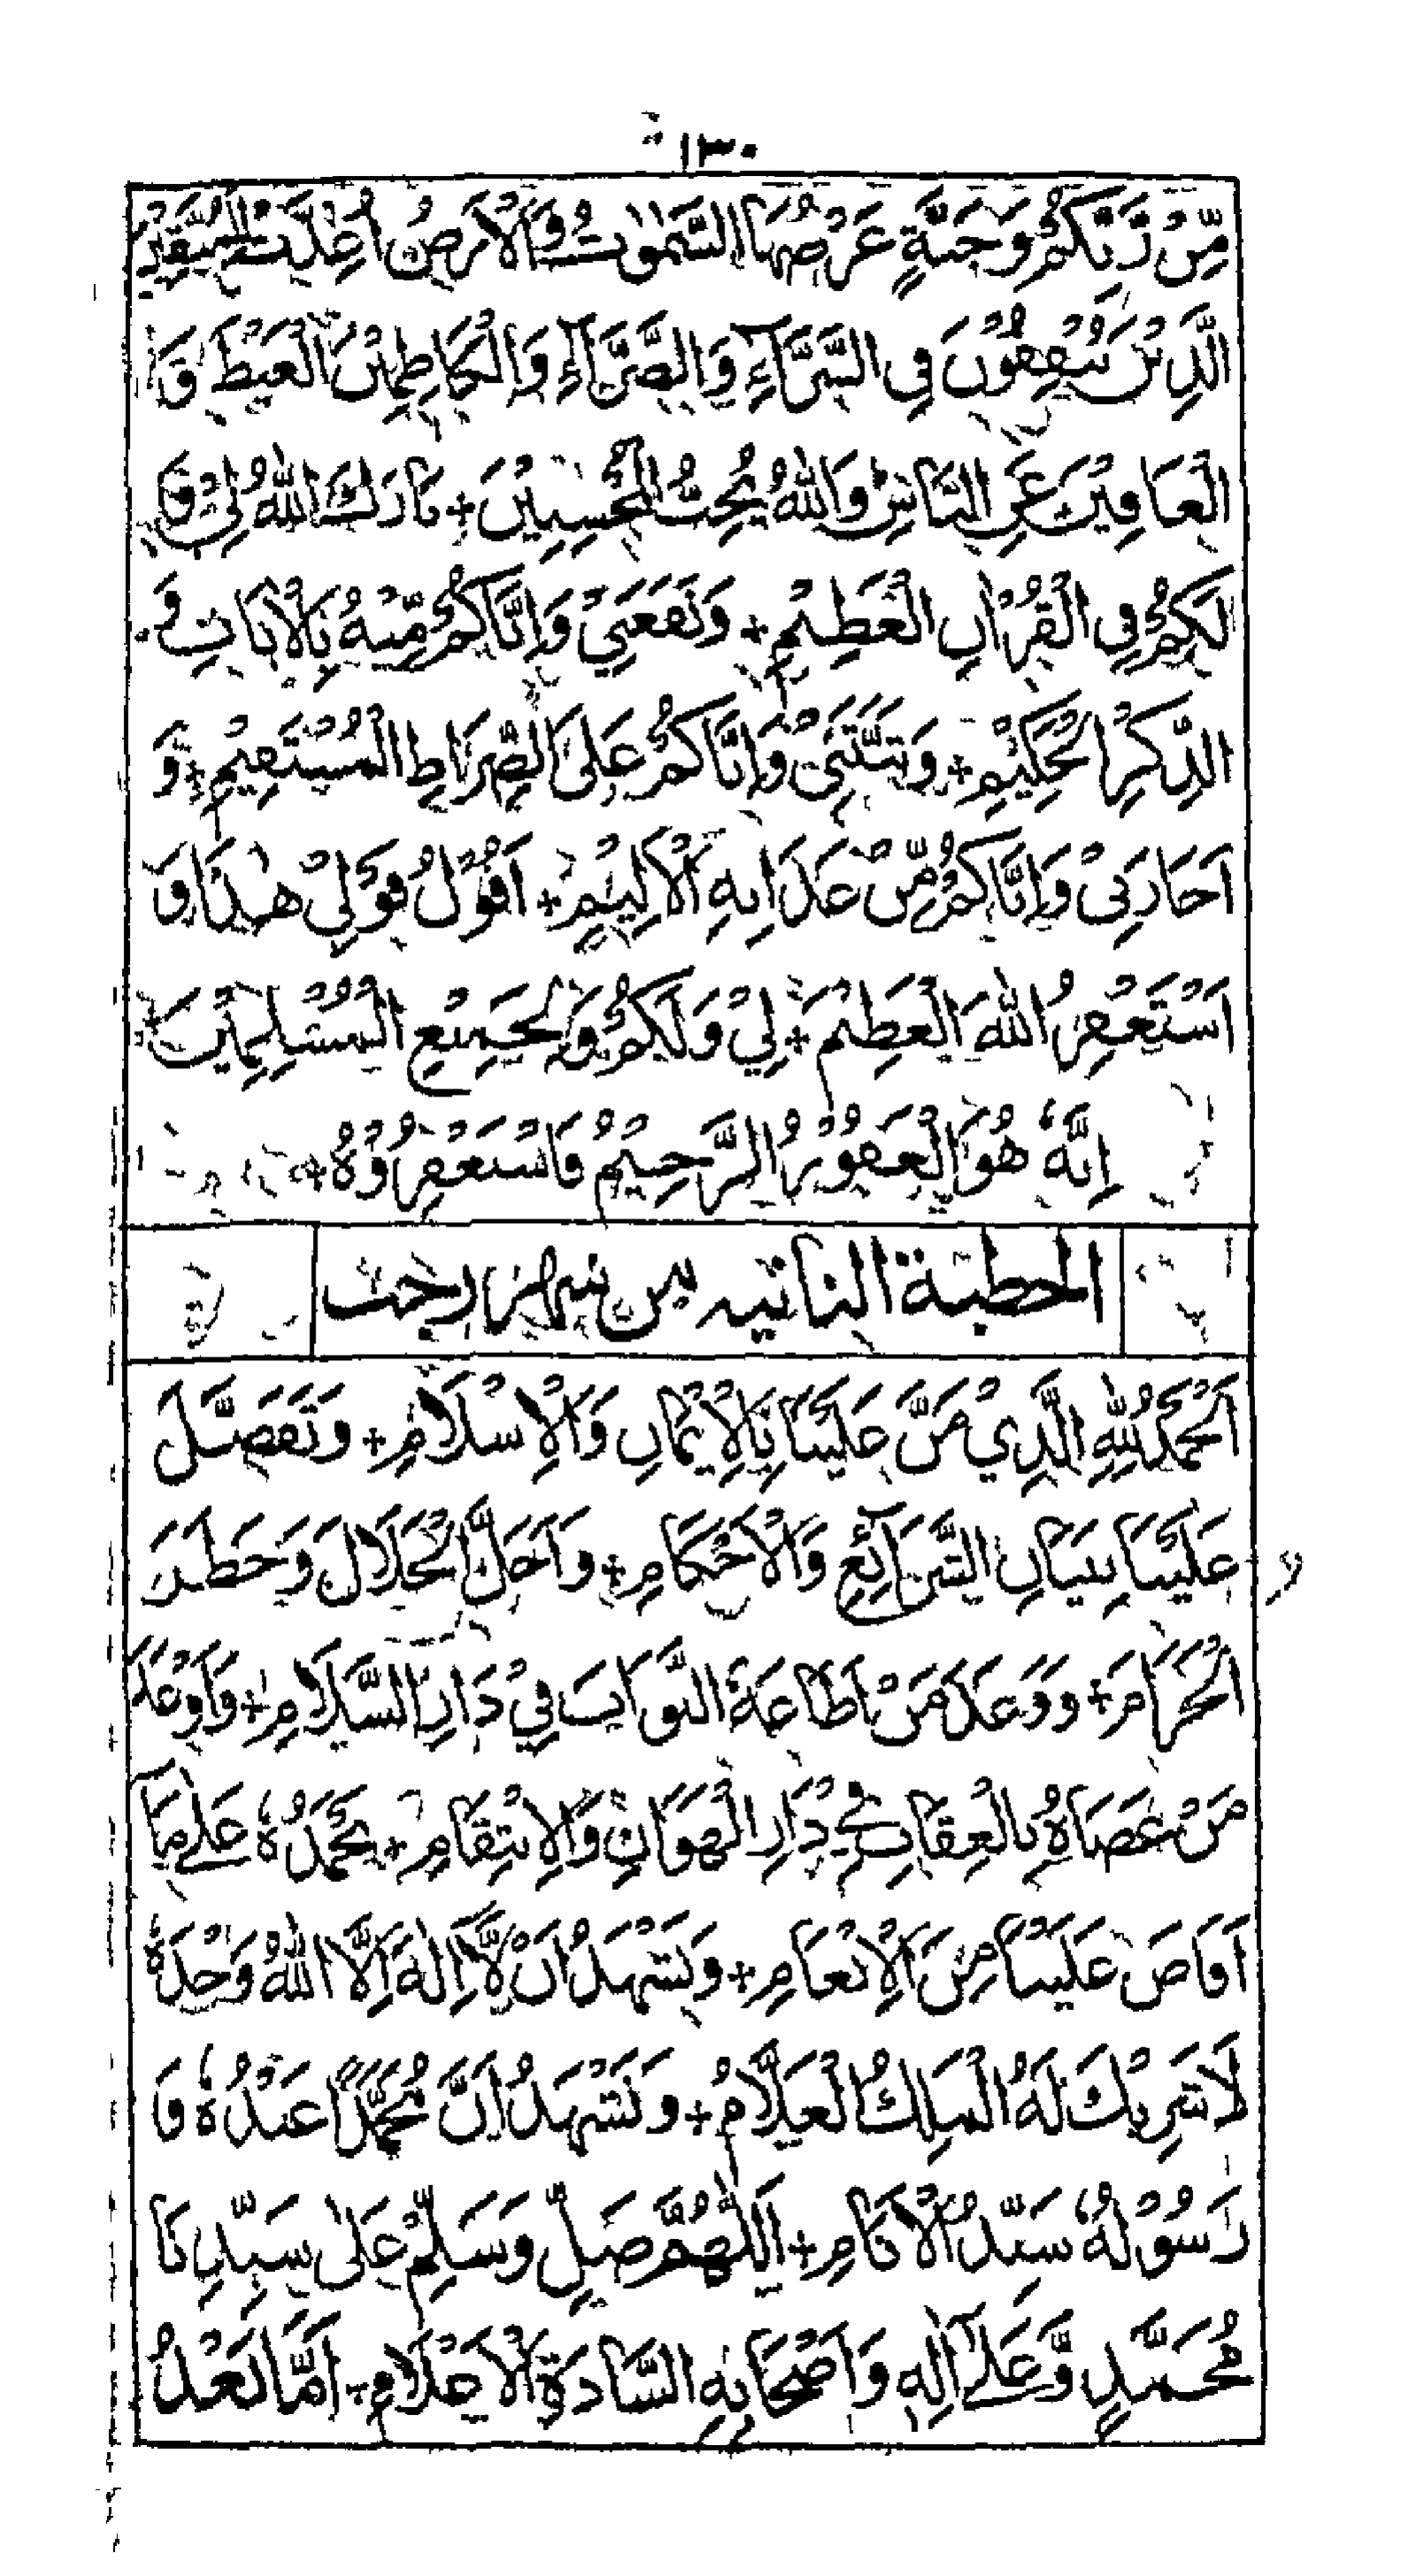 ١٣٠
مِّنْ رَّبِّكُمْ وَجَنَّةٍ عَرْضُهَا السَّمٰوٰتُ وَالْاَرْضُ اُعِدَّتْ لِلْمُتَّقِيْنَ
الَّذِيْنَ يُنْفِقُوْنَ فِي السَّرَّآءِ وَالضَّرَّآءِ وَالْكَاظِمِيْنَ الْغَيْظَ وَ
الْعَافِيْنَ عَنِ النَّاسِ وَاللّٰهُ يُحِبُّ الْمُحْسِنِيْنَ + بَارَكَ اللّٰهُ لِيْ وَ
لَكُمْ فِي الْقُرْاٰنِ الْعَظِيْمِ + وَنَفَعَنِيْ وَاِيَّاكُمْ مِّنْهُ بِالْاٰيَاتِ وَ
الذِّكْرِ الْحَكِيْمِ + وَثَبَّتَنِيْ وَاِيَّاكُمْ عَلَى الصِّرَاطِ الْمُسْتَقِيْمِ + وَ
اَجَارَنِيْ وَاِيَّاكُمْ مِّنْ عَذَابِهِ الْاَلِيْمِ + اَقُوْلُ قَوْلِيْ هٰذَا وَ
اَسْتَغْفِرُ اللّٰهَ الْعَظِيْمَ + لِيْ وَلَكُمْ وَلِجَمِيْعِ الْمُسْلِمِيْنَ +
اِنَّهٗ هُوَ الْغَفُوْرُ الرَّحِيْمُ فَاسْتَغْفِرُوْهُ +
الخطبة الثانية من شهر رجب
اَلْحَمْدُ لِلّٰهِ الَّذِيْ مَنَّ عَلَيْنَا بِالْاِيْمَانِ وَالْاِسْلَامِ + وَتَفَضَّلَ
عَلَيْنَا بِبَيَانِ الشَّرَآئِعِ وَالْاَحْكَامِ + وَاَحَلَّ الْحَلَالَ وَحَظَرَ
الْحَرَامَ + وَوَعَدَ مَنْ اَطَاعَهُ الثَّوَابَ فِيْ دَارِ السَّلَامِ + وَاَوْعَدَ
مَنْ عَصَاهُ بِالْعِقَابِ فِيْ دَارِ الْهَوَانِ وَالْاِنْتِقَامِ + نَحْمَدُهٗ عَلٰى مَا
اَفَاضَ عَلَيْنَا مِنَ الْاِنْعَامِ + وَنَشْهَدُ اَنْ لَّا اِلٰهَ اِلَّا اللّٰهُ وَحْدَهٗ
لَا شَرِيْكَ لَهُ الْمَلِكُ الْعَلَّامُ + وَنَشْهَدُ اَنَّ مُحَمَّدًا عَبْدُهٗ وَ
رَسُوْلُهٗ سَيِّدُ الْاَنَامِ + اَللّٰهُمَّ صَلِّ وَسَلِّمْ عَلٰى سَيِّدِنَا
مُحَمَّدٍ وَّعَلٰى اٰلِهٖ وَاَصْحَابِهِ السَّادَةِ الْاَعْلَامِ + اَمَّا بَعْدُ